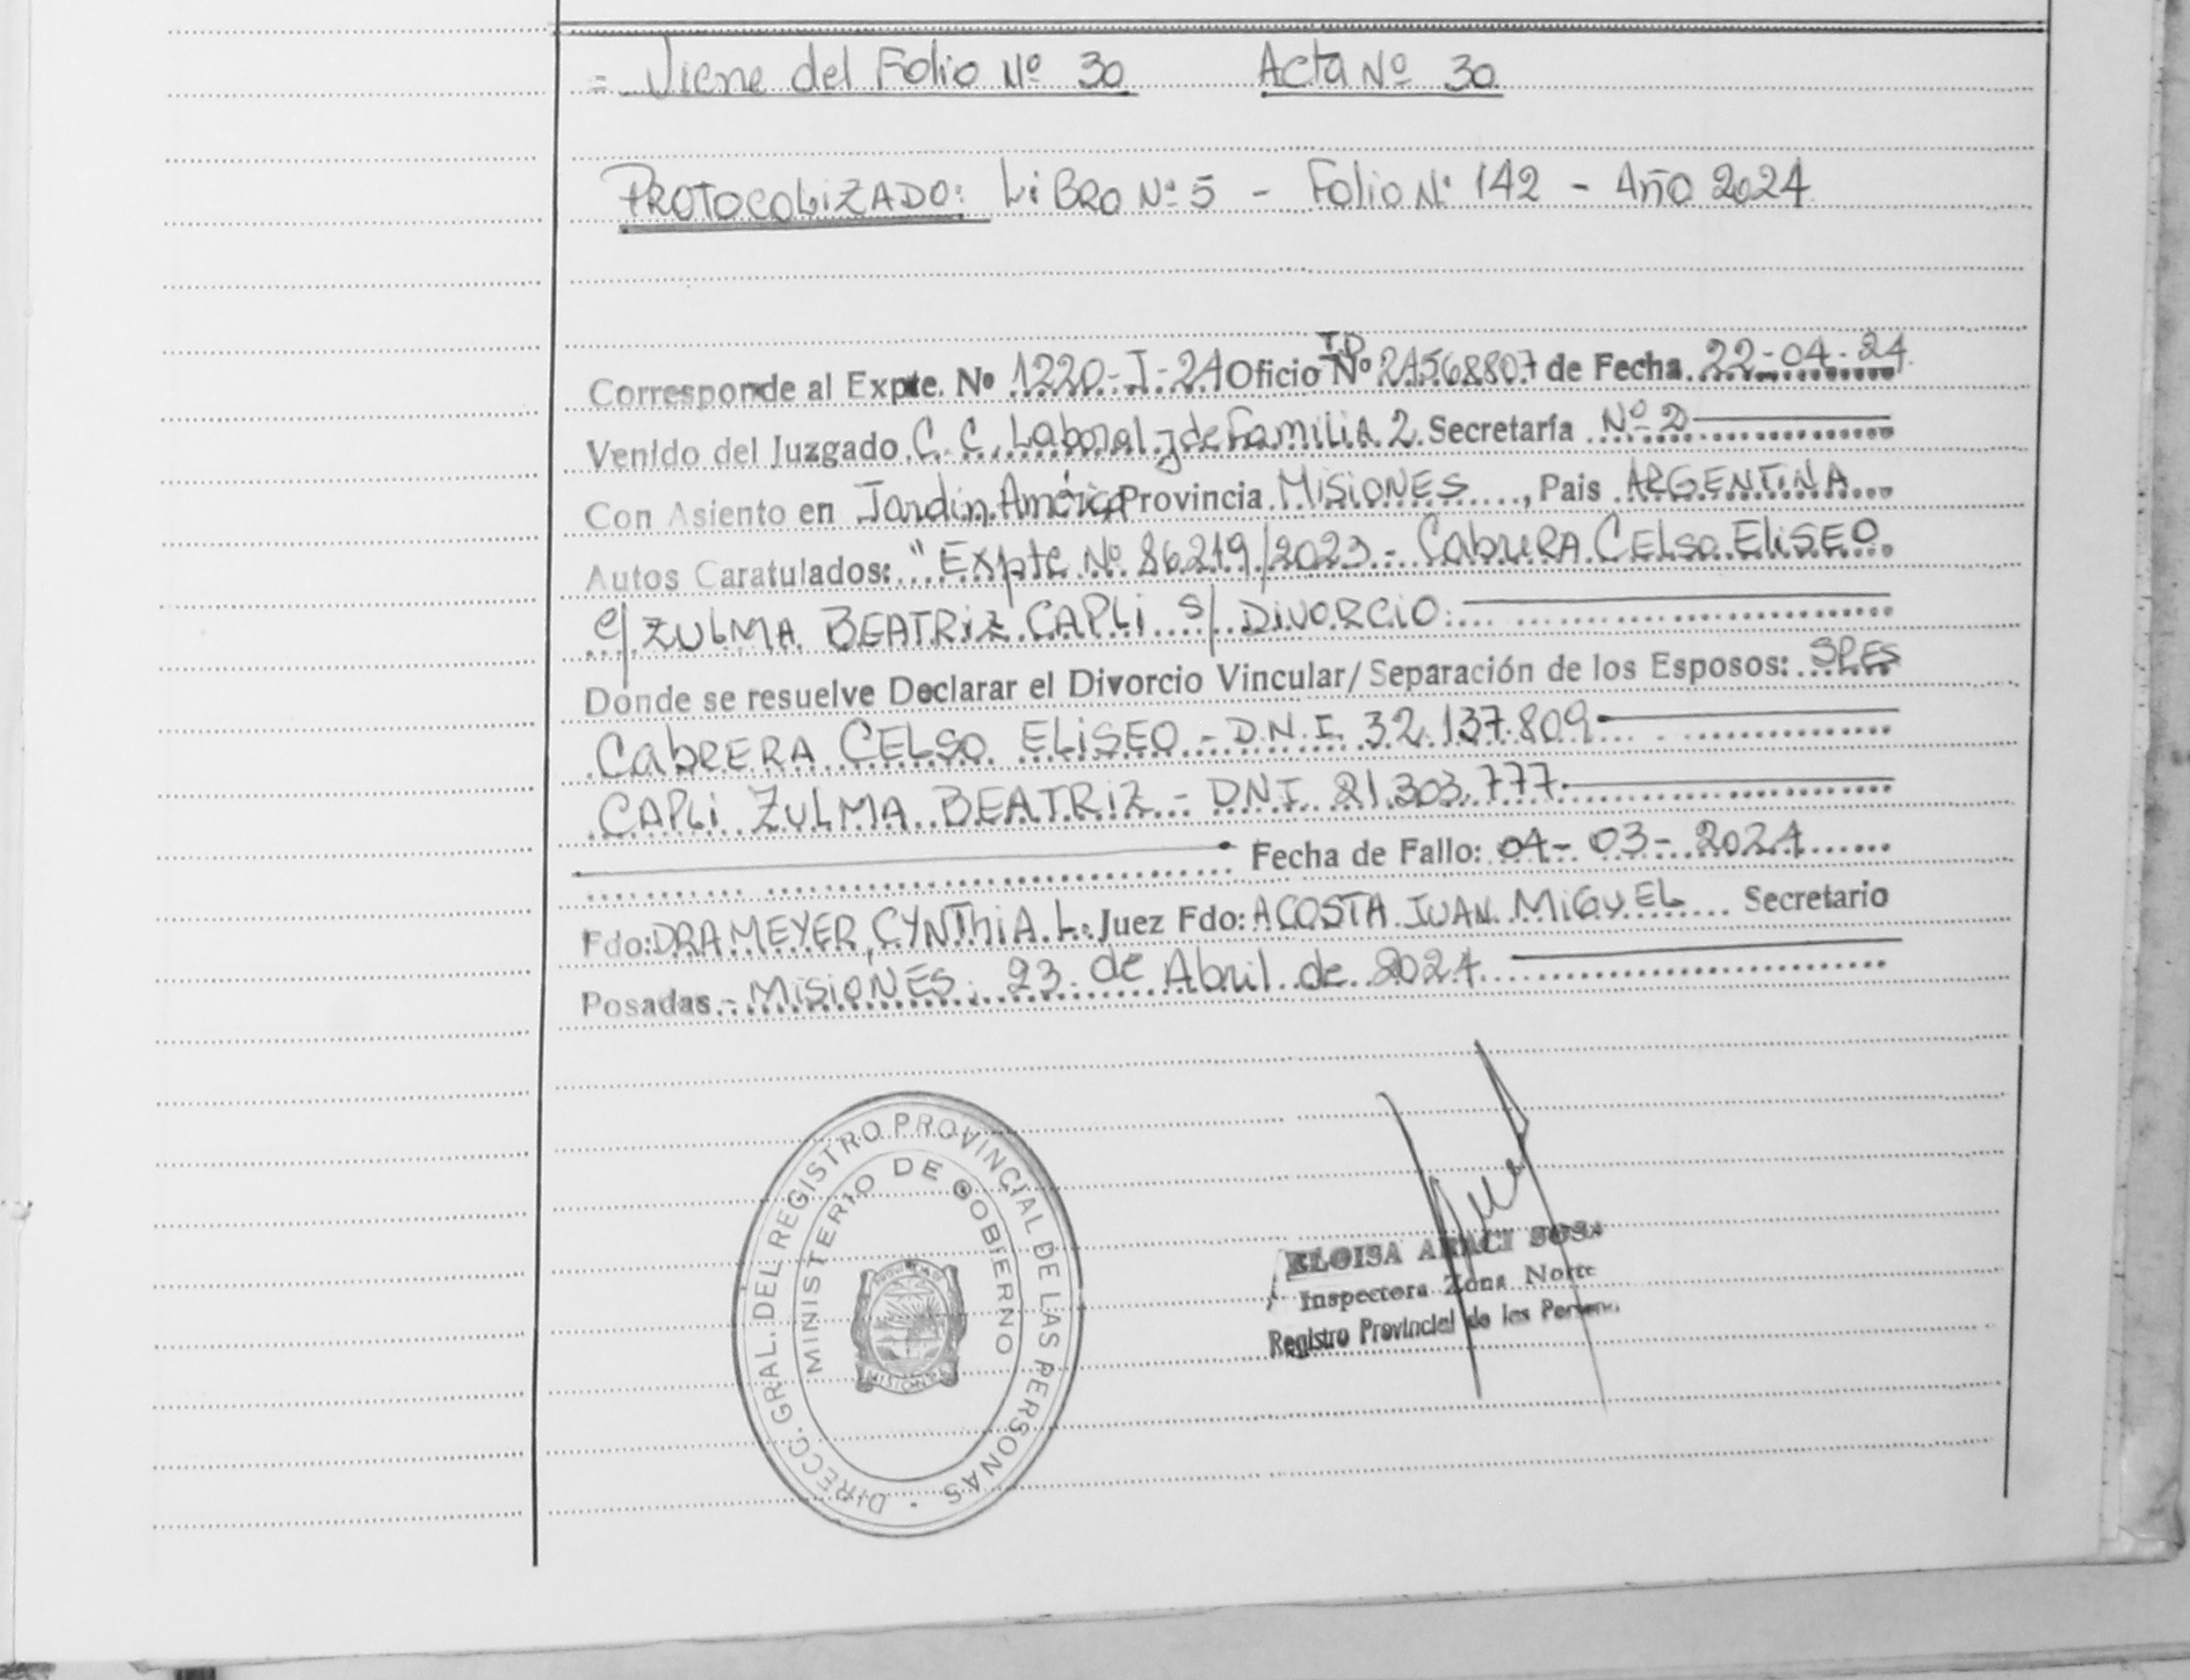 = Viene del Folio Nº 30 Acta Nº 30
PROTOCOLIZADO: LIBRO Nº 5 - Folio Nº 142 - Año 2024
T.D
Corresponde al Expte. Nº 1220-I-24 Oficio Nº 24568807 de Fecha 22-04-24
Venido del Juzgado C. C. Laboral y de Familia 2 Secretaría Nº 2
Con Asiento en Jardín América Provincia MISIONES, Pais ARGENTINA
Autos Caratulados: "Expte Nº 86219/2023 - CabreRA CELso EliSEO
c/ ZULMA BEATRIZ CAPLI s/ DIVORCIO:
Donde se resuelve Declarar el Divorcio Vincular/Separación de los Esposos: SRES
CabRERA CELSO ELISEO - D.N.I. 32.137.809
CAPLI ZULMA BEATRIZ - DNI 21.303.777
Fecha de Fallo: 04-03-2024
Fdo: DRA MEYER, CYNTHIA. L. Juez Fdo: ACOSTA JUAN MIGUEL Secretario
Posadas - MISIONES, 23 de Abril de 2024
DIRECC. GRAL. DEL REGISTRO PROVINCIAL DE LAS PERSONAS
MINISTERIO DE GOBIERNO
PROVINCIA DE
MISIONES
ELOISA ARACI SOSA
Inspectora Zona Norte
Registro Provincial de las Personas